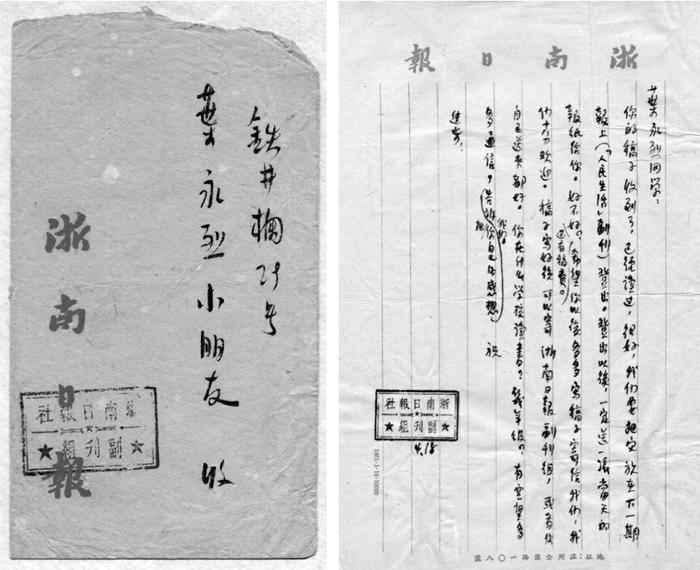 葉永烈小朋友 收
浙南日報
浙南日報社
副刊組
浙南日報
葉永烈同學：
你的稿子收到了，已經讀过，很好，我們要把它放在下一期
報上（「人民生活」副刊）登出。登出以後，一定送一張當天的
報紙給你。好不好？希望你以後多多寫稿子寄給我們，我
还有稿費。
们十分欢迎。稿子寫好後可以寄 浙南日報副刊組，或者你
自己送來都好。你在什么学校讀書？幾年級？有空望多
多通信，告訴 自己的感想 祝
進步！
浙南日報社
副刊組
4.18
地址：温州公園路一〇八號